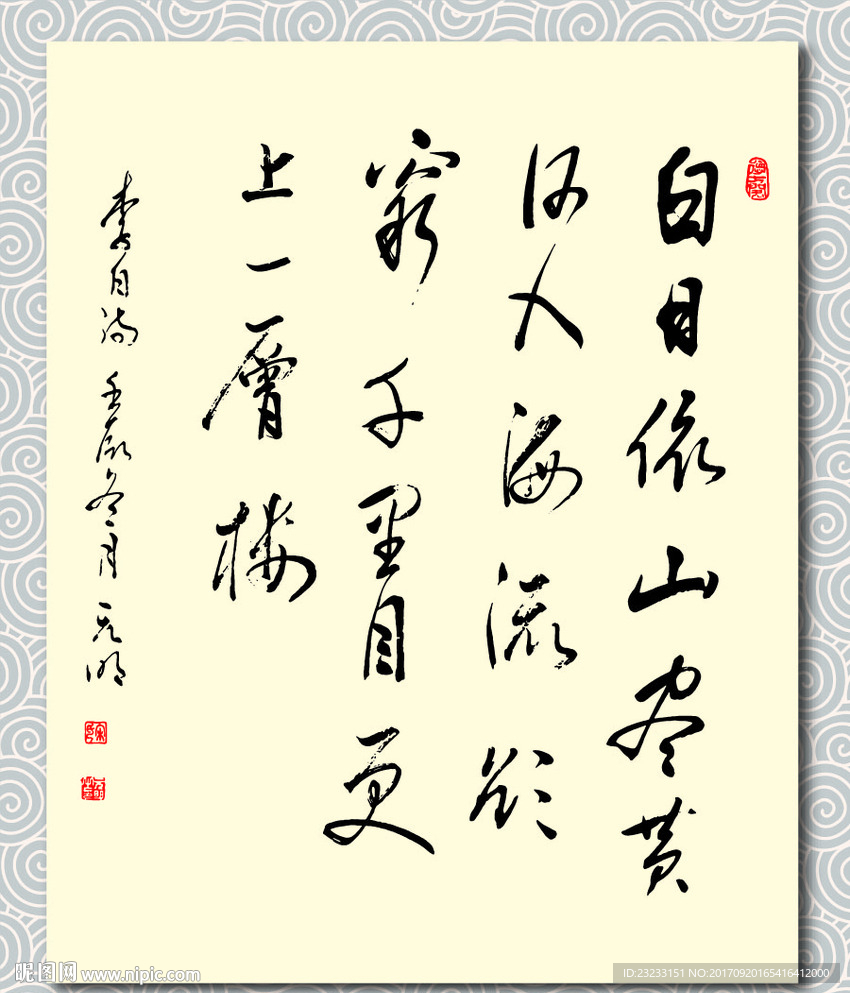 白日依山尽黄
河入海流欲
窮千里目更
上一層楼
李白诗 壬辰冬月
昵图网 www.nipic.com
ID:23233151 NO:20170920165416412000